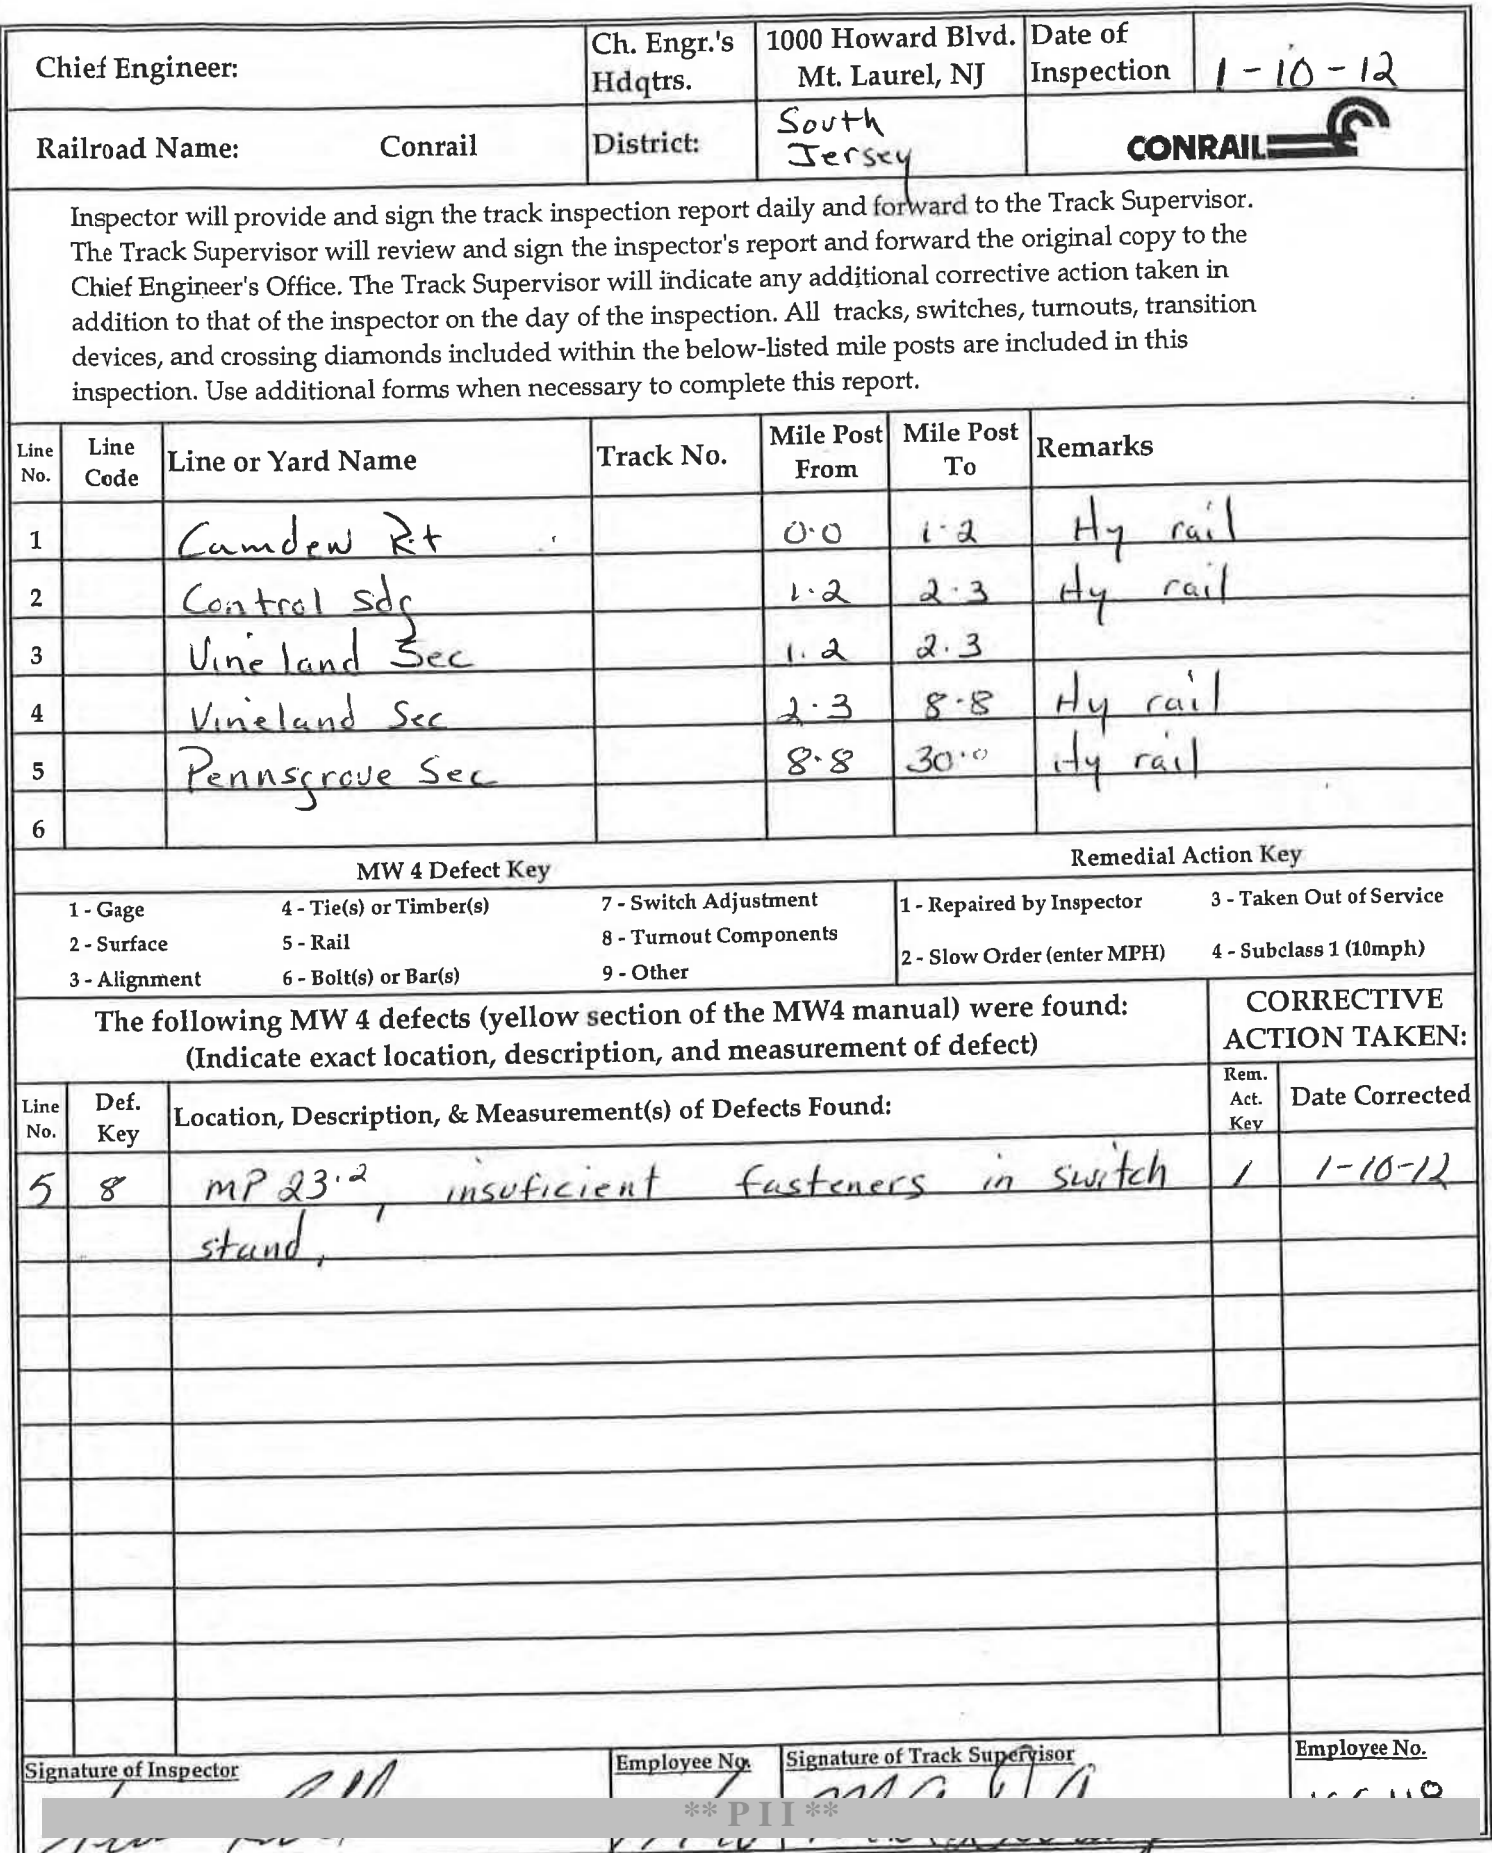 Chief Engineer:
Ch. Engr.'s Hdqtrs.
1000 Howard Blvd. Mt. Laurel, NJ
Date of Inspection
1-10-12
Railroad Name: Conrail
District:
South Jersey
CONRAIL
Inspector will provide and sign the track inspection report daily and forward to the Track Supervisor.
The Track Supervisor will review and sign the inspector's report and forward the original copy to the
Chief Engineer's Office. The Track Supervisor will indicate any additional corrective action taken in
addition to that of the inspector on the day of the inspection. All tracks, switches, turnouts, transition
devices, and crossing diamonds included within the below-listed mile posts are included in this
inspection. Use additional forms when necessary to complete this report.
Line No. Line Code Line or Yard Name Track No. Mile Post From Mile Post To Remarks
1 Camden Rt 0.0 1.2 Hy rail
2 Control Sdg 1.2 2.3 Hy rail
3 Vineland Sec 1.2 2.3
4 Vineland Sec 2.3 8.8 Hy rail
5 Pennsgrove Sec 8.8 30.0 Hy rail
6
MW 4 Defect Key Remedial Action Key
1 - Gage 4 - Tie(s) or Timber(s) 7 - Switch Adjustment 1 - Repaired by Inspector 3 - Taken Out of Service
2 - Surface 5 - Rail 8 - Turnout Components 2 - Slow Order (enter MPH) 4 - Subclass 1 (10mph)
3 - Alignment 6 - Bolt(s) or Bar(s) 9 - Other
The following MW 4 defects (yellow section of the MW4 manual) were found:
(Indicate exact location, description, and measurement of defect)
CORRECTIVE
ACTION TAKEN:
Line No. Def. Key Location, Description, & Measurement(s) of Defects Found: Rem. Act. Key Date Corrected
5 8 MP 23.2, insuficient fasteners in switch 1 1-10-12
stand,
Signature of Inspector Employee No. Signature of Track Supervisor Employee No.
** P I I **